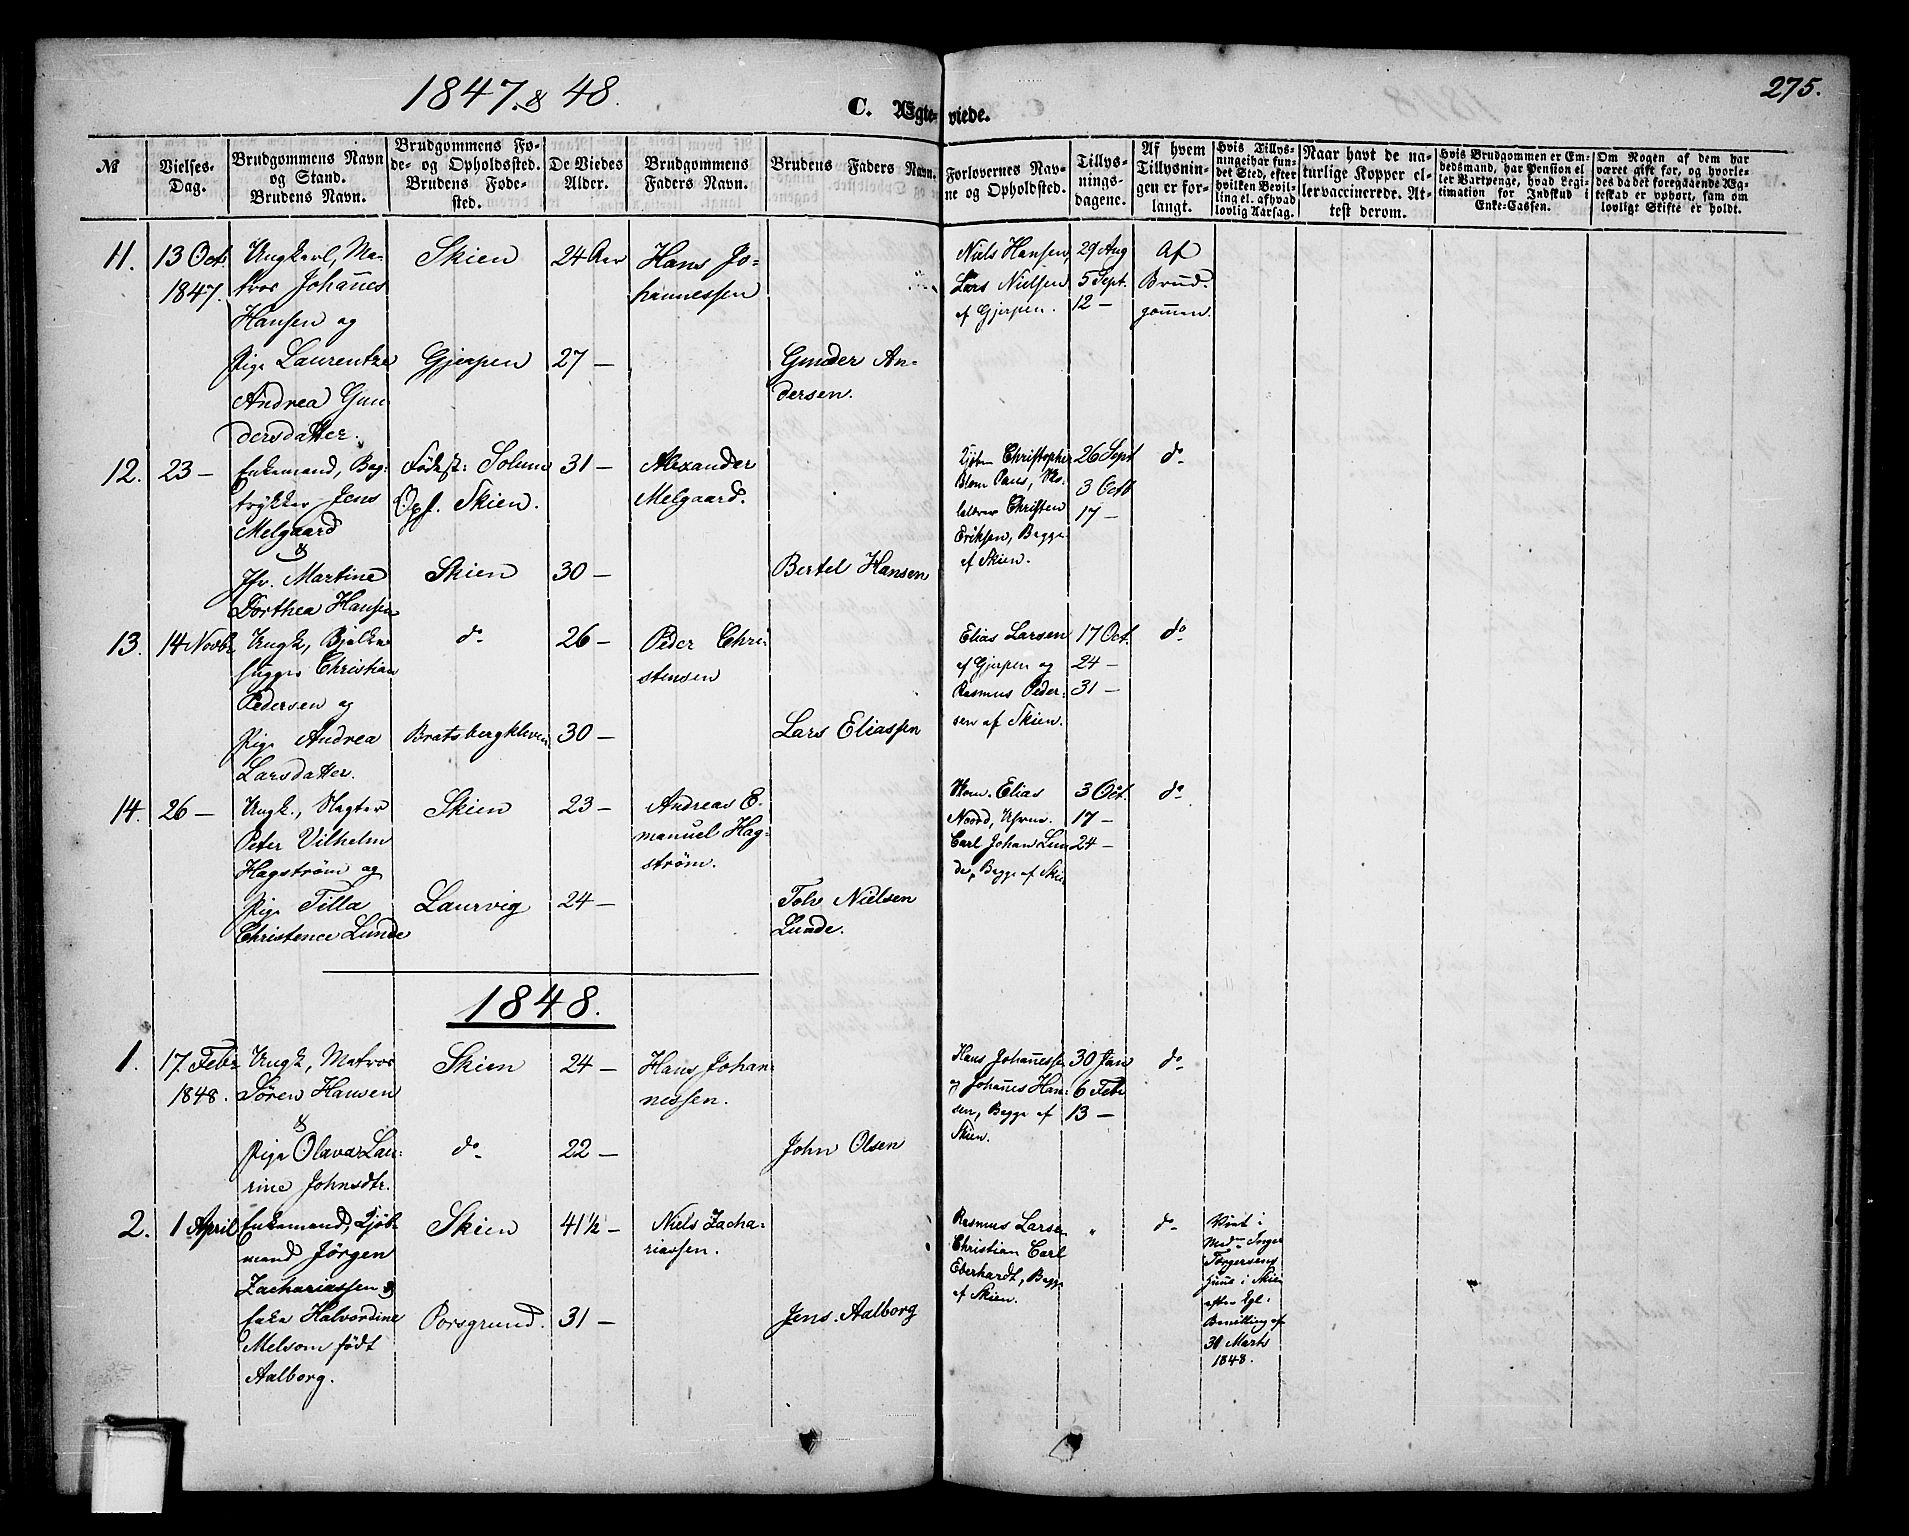 1847 & 48.
C. Ægteviede.
275.
№
Vielses-
Dag.
Brudgommens Navn
og Stand.
Brudens Navn.
Brudgommens Fø-
de- og Opholdssted.
Brudens Føde-
sted.
De Viedes
Alder.
Brudgommens
Faders Navn.
Brudens Faders Navn.
Forlovernes Nav-
ne og Opholdsted.
Tillys-
nings-
dagene.
Af hvem
Tillysnin-
gen er for-
langt.
Hvis Tillys-
ning ei har fun-
det Sted, efter
hvilken Bevil-
ling el. afhvad
lovlig Aarsag.
Naar havt de na-
turlige Kopper el-
ler vaccinerede. At-
test derom.
Hvis Brudgommen er Em-
bedsmand, har Pension el-
ler Vartpenge, hvad Legi-
timation for Indskud i
Enke-Cassen.
Om Nogen af dem har
været gift før, og hvorle-
des da det foregaaende Æg-
teskab er ophørt, sam om
lovligt Skifte er holdt.
11.
13 Oct.
1847.
Ungkarl, Ma-
tros Johannes
Hansen og
Pige Laurentze
Andrea Gun-
dersdatter.
Skien
Gjerpen
24 Aar
27 —
Hans Jo-
hannessen
Gunder An-
dersen.
Niels Hansen,
Lars Nielsen
af Gjerpen.
29 Aug
5 Sept.
12 —
Af
Brud-
gommen.
12.
23 —
Enkemand, Bog-
trykker Jens
Melgaard
&
Jfr. Martine
Dorthea Hansen
Födest: Solum
Oph. Skien.
Skien
31 —
30 —
Alexander
Melgaard.
Bertel Hansen
Kjöbm Christopher
Blom Paus, Sko-
lelærer Christen
Eriksen, Begge
af Skien.
26 Sept
3 Octb
17 —
do
13.
14 Novbr
Ungk, Bjelke-
hugger Christian
Pedersen og
Pige Andrea
Larsdatter.
do
Bratsbergkleven
26 —
30 —
Peder Chri-
stensen
Lars Eliassen
Elias Larsen
af Gjerpen og
Rasmus Peder-
sen af Skien.
17 Oct.
24 —
31 —
do
14.
26 —
Ungk., Slagter
Peter Vilhelm
Hagström og
Pige Tilla
Christence Lunde
Skien
Laurvig
23 —
24 —
Andreas E-
manuel Hag-
ström.
Tolv Nielsen
Lunde.
Elias
Noord,
Carl Johan Lun
de, Begge af Skien
3 Oct.
17 —
24 —
do
1848.
1.
17. Febr
1848.
Ungk, Matros
Sören Hansen
&
Pige Olava Lau-
rine Johnsdtr.
Skien
do
24 —
22 —
Hans Johan-
nessen.
John Olsen
Hans Johannessen
og Johannes Han-
sen, Begge af
Skien.
30 Jan
6 Febr
13 —
do
2.
1 April
Enkemand, Kjöb-
mand Jörgen
Zachariassen &
Enke Halvordine
Melsom födt
Aalborg.
Skien
Porsgrund.
41 1/2 —
31 —
Niels Zacha-
riassen.
Jens Aalborg
Rasmus Larsen
Christian Carl
Eberhardt, Begge
af Skien.
"
do
Viet i
Madm Inger
Torgersens
Huus i Skien
efter kgl.
Bevilling af
30 Marts
1848.